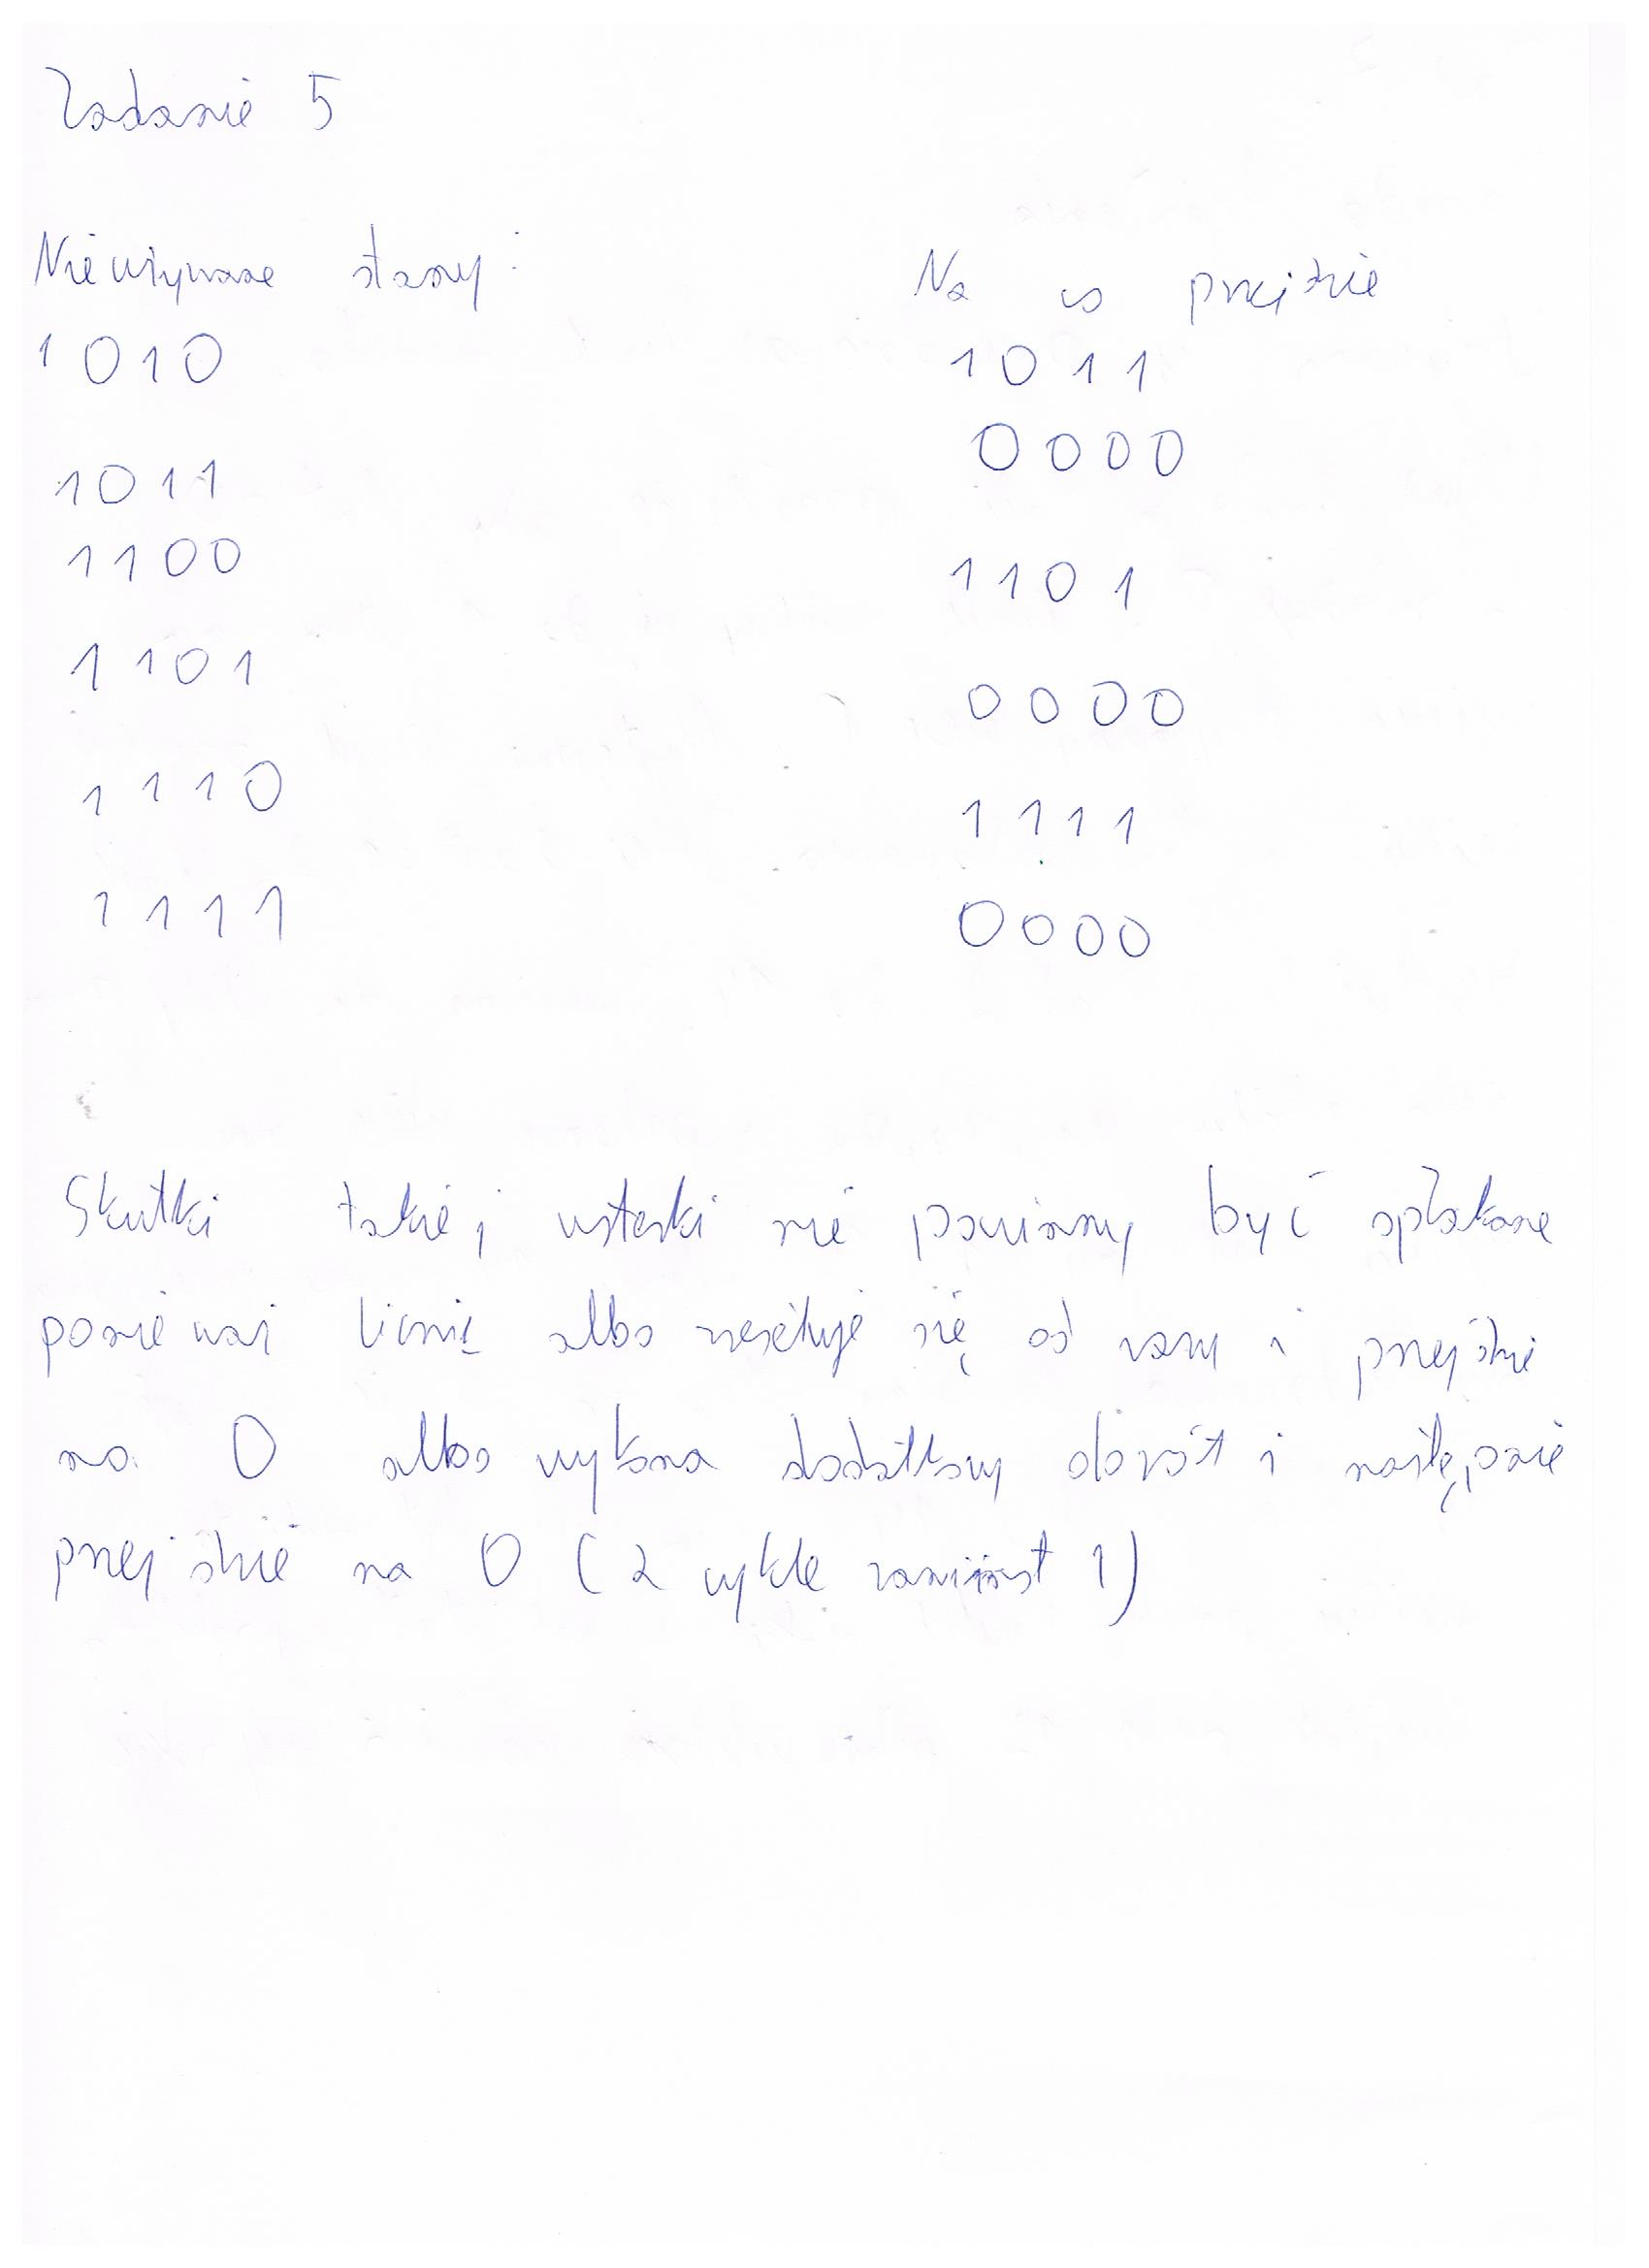 Zadanie 5
Nieużywane stany: Na co przejdzie
1010 1011
1011 0000
1100 1101
1101 0000
1110 1111
1111 0000
Skutki takiej usterki nie powinny być opłakane
ponieważ licznik albo zresetuje się od razu i przejdzie
na 0 albo wykona dodatkowy obrót i następnie
przejdzie na 0 (2 cykle zamiast 1)